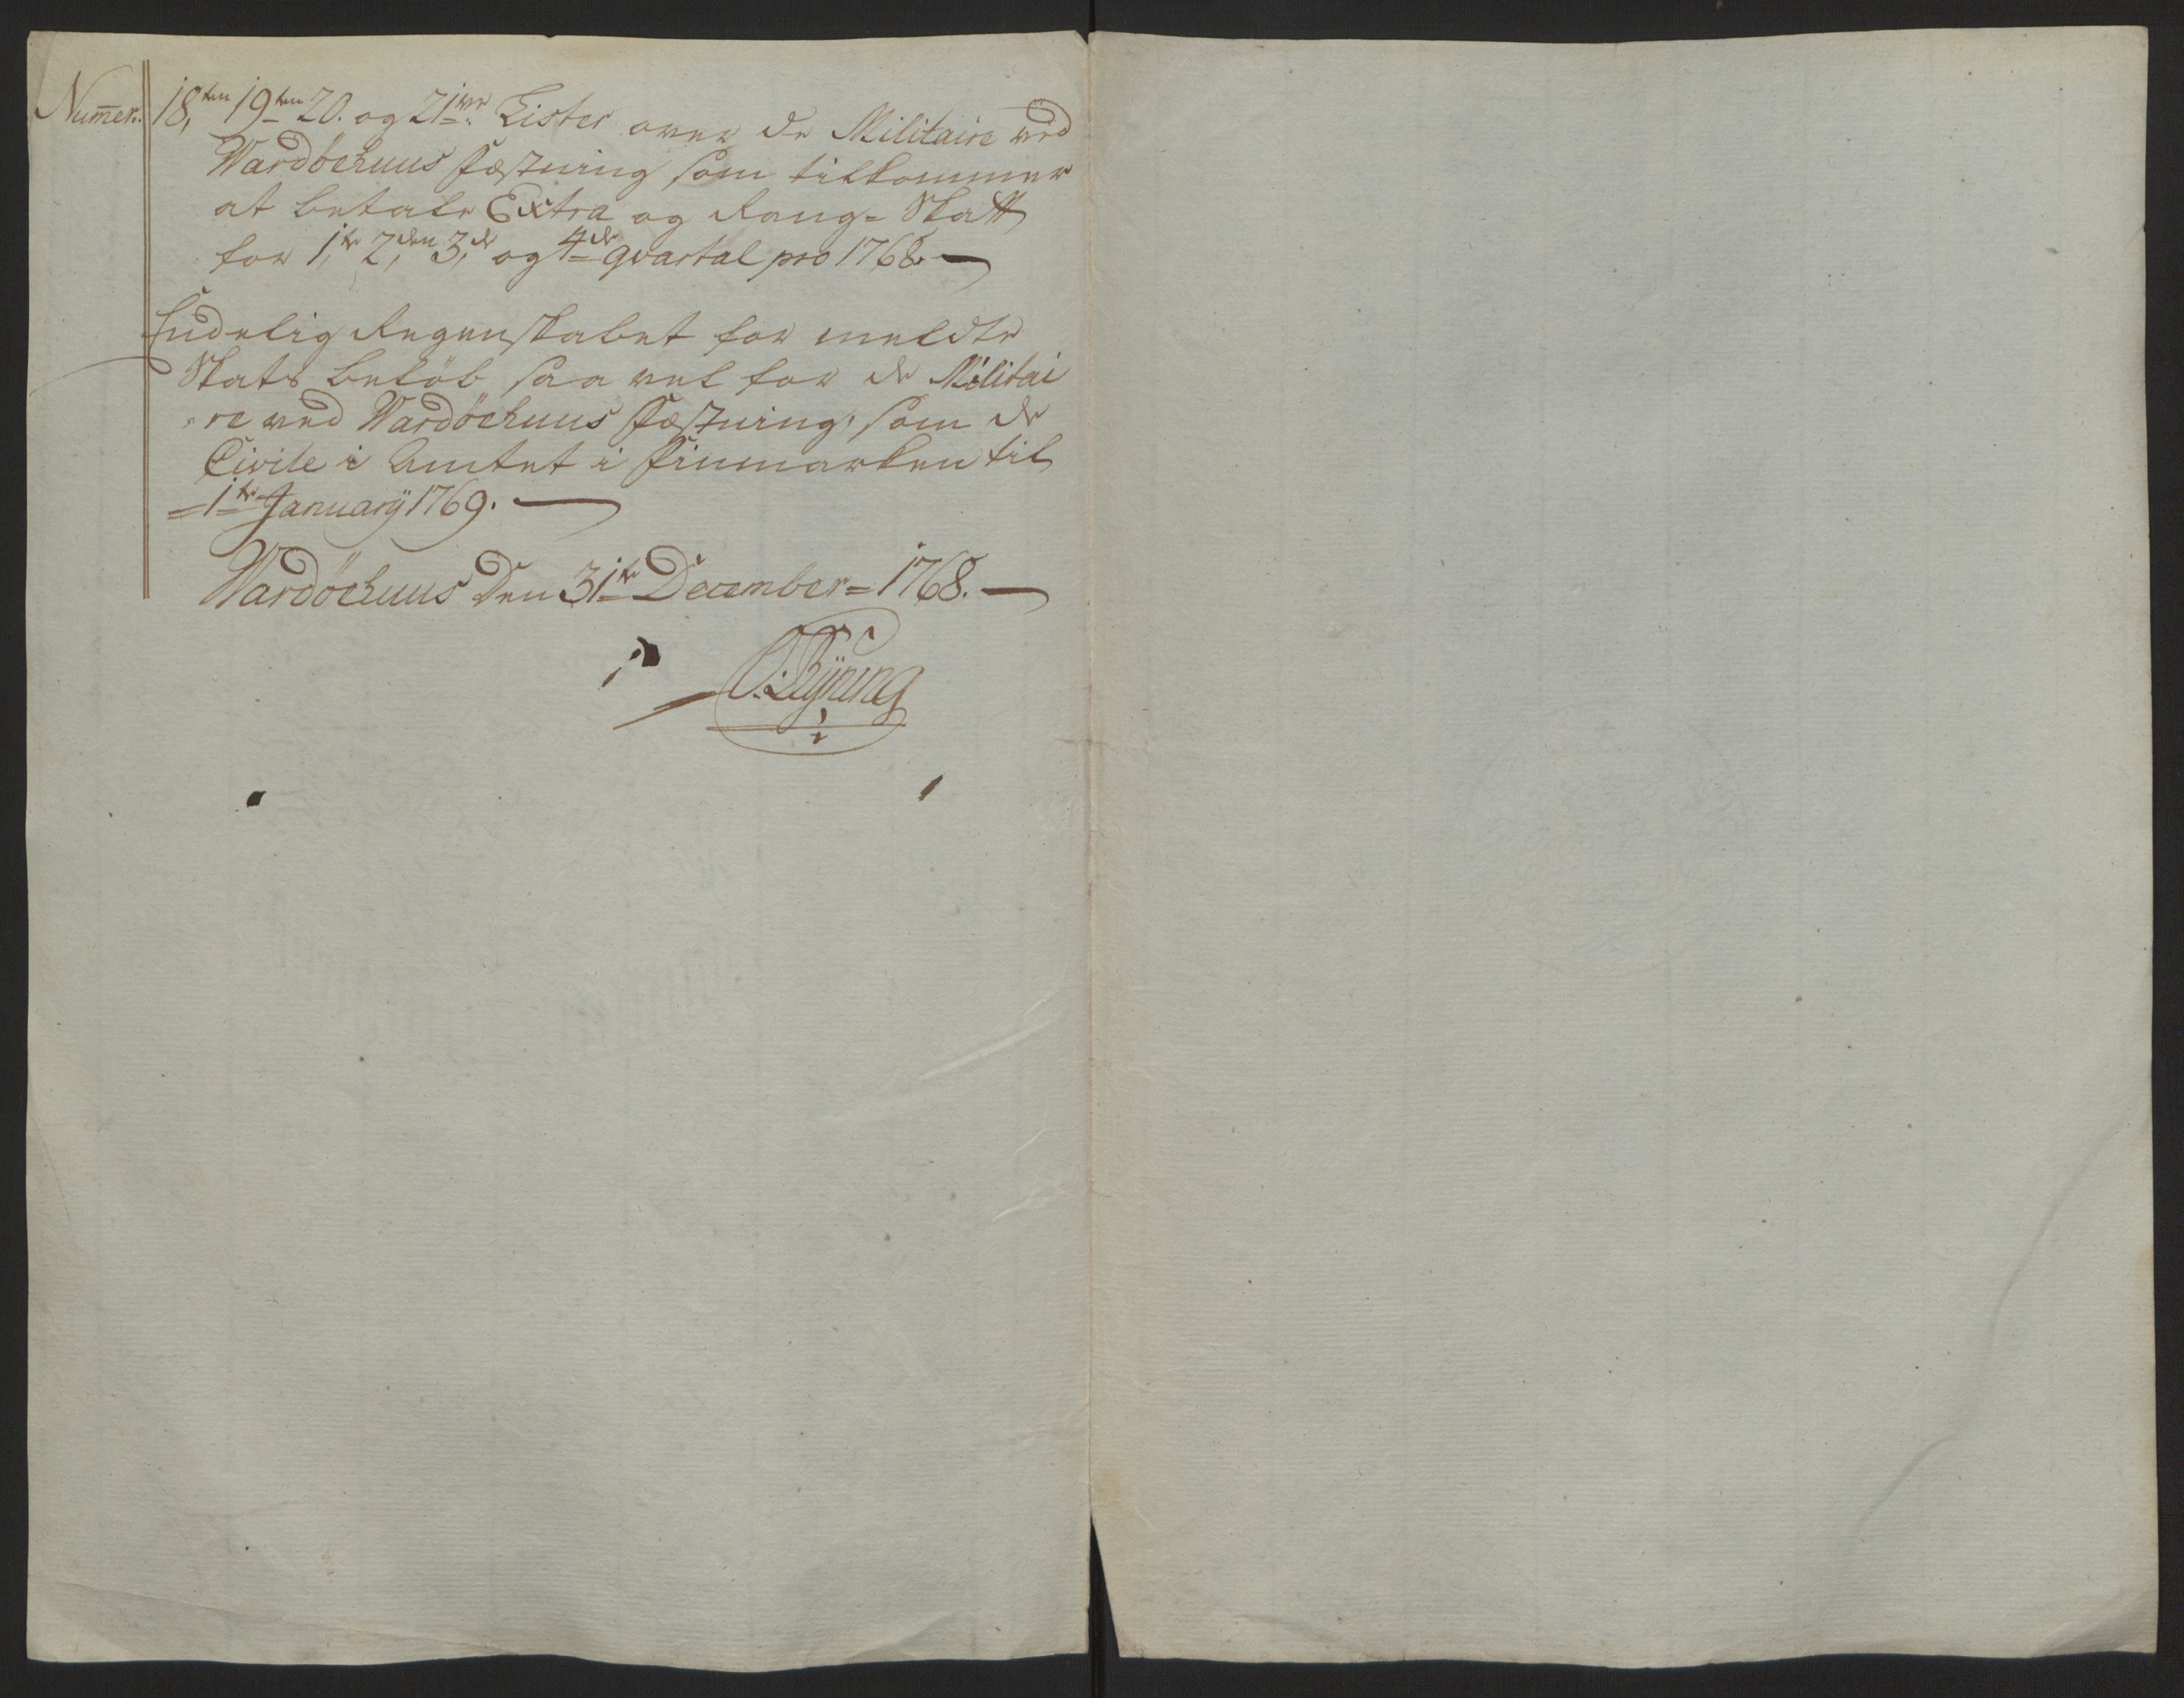 Numer: 18, ten 19 ten 20. og 21 ve. Lister over de Militaire ved
Wardöehuus Fæstning som tilkommer
at betale Extra og Rang= Skatt
for 1, te 2, den 3, de og 4 de qvartal pro 1768. —
Endelig Regenskabet for meldte
Skats beløb saa vel for de Militai
re ved Wardöehuus Fæstning, som de
Civile i Amtet i Finmarken til
= 1 te Januarÿ 1769. —
Wardöehuus Den 31 te December = 1768. —